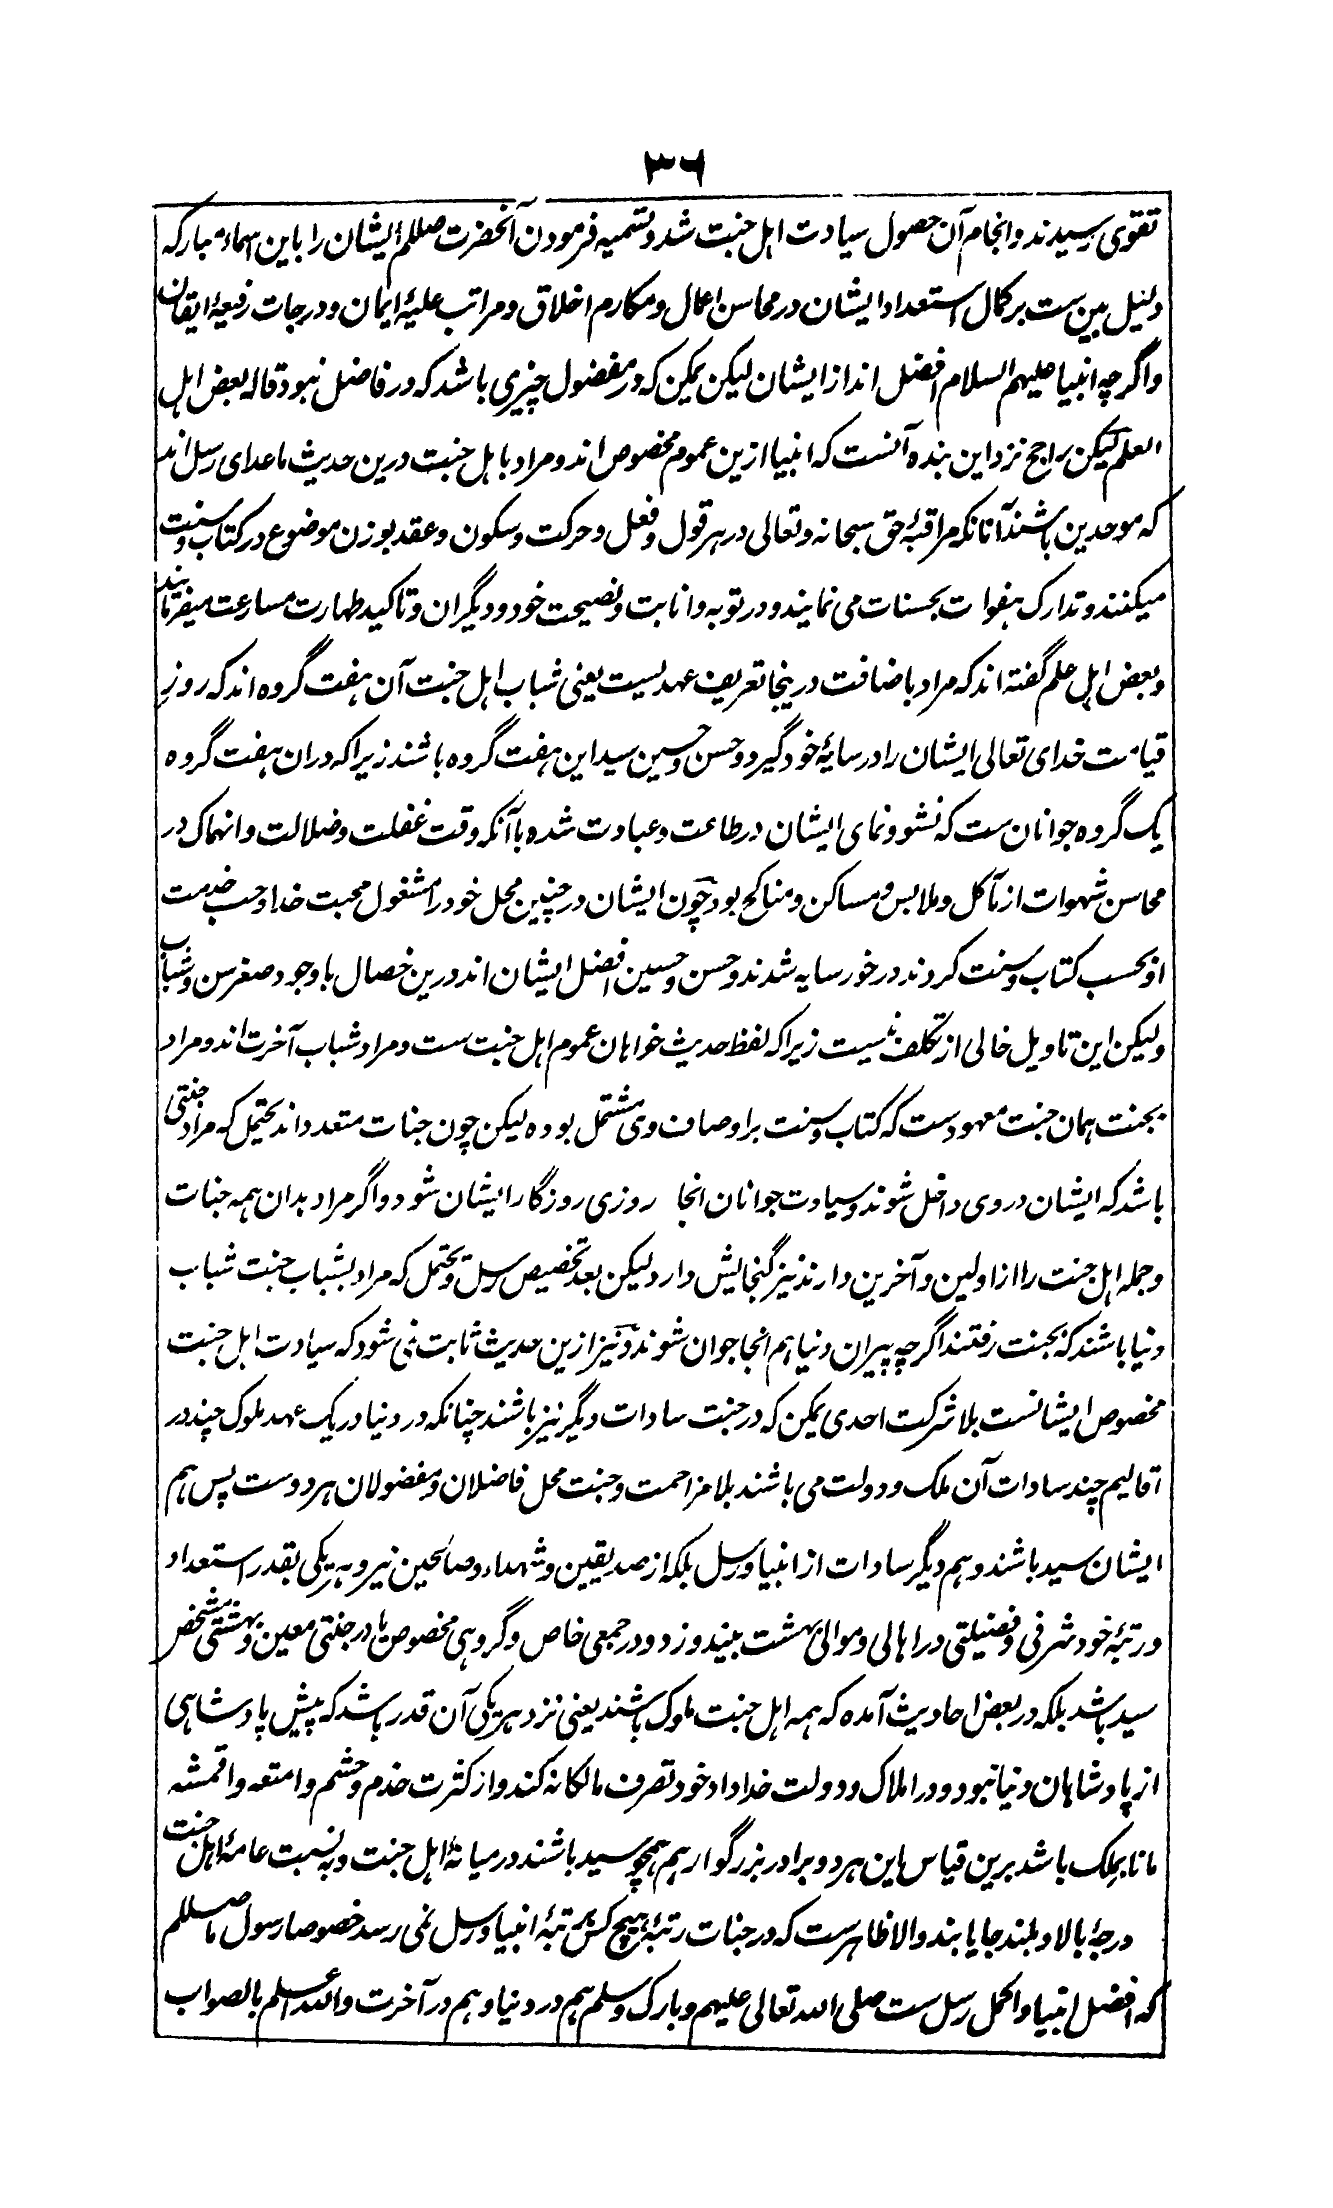 ۳۶
تقوی رسیدند و انجام آن حصول سیادت اہل جنت شد و تسمیه فرمودن آنحضرت صللم ایشان را باین اسماء مبارکه
دلیل بین ست بر کمال استعداد ایشان در محاسن اعمال و مکارم اخلاق و مراتب علیۀ ایمان و درجات رفیعۀ ایقان
و اگرچه انبیا علیہم السلام افضل اند از ایشان لیکن یمکن که در مفضول چیزی باشد که در فاضل نبود قاله بعض اہل
العلم لیکن راجح نزد این بنده آنست که انبیا ازین عموم مخصوص اند و مراد باہل جنت درین حدیث ماعدای رسل اند
که موحدین باشند آنانکه مراقبۀ حق سبحانه و تعالی در ہر قول و فعل و حرکت و سکون و عقد بوزن موضوع در کتاب و سنت
میکنند و تدارک ہفوات بحسنات می نمایند و در توبه و انابت و نصیحت خود و دیگران و تاکید طہارت مسارعت میفرمایند
و بعض اہل علم گفته اند که مراد باضافت درینجا تعریف عہد لیست یعنی شباب اہل جنت آن ہفت گروه اند که روز
قیامت خدای تعالی ایشان را در سایۀ خود گیرد و حسن و حسین سید این ہفت گروه باشند زیرا که دران ہفت گروه
یک گروه جوانان ست که نشو و نمای ایشان در طاعت و عبادت شده باآنکه وقت غفلت و ضلالت و انہماک در
محاسن شہوات از مآکل و ملابس و مساکن و مناکح بود چون ایشان در چنین محل خود را مشغول محبت خدا و حب خدمت
او بحسب کتاب و سنت کردند درخور سایه شدند و حسن و حسین افضل ایشان اند درین خصال باوجود صغر سن و شباب
ولیکن این تاویل خالی از تکلف نیست زیرا که لفظ حدیث خواہان عموم اہل جنت ست و مراد شباب آخرت اند و مراد
بجنت ہمان جنت معہود ست که کتاب و سنت بر اوصاف وی مشتمل بوده لیکن چون جنات متعدد اند یحتمل که مراد جنتی
باشد که ایشان در وی داخل شوند و سیادت جوانان انجا روزی روزگار ایشان شود و اگر مراد بدان ہمه جنات
و جمله اہل جنت را از اولین و آخرین دارند نیز گنجایش دارد لیکن بعد تخصیص رسل و یحتمل که مراد بشباب جنت شباب
دنیا باشند که بجنت رفتند اگرچه پیران دنیا ہم انجا جوان شوند و نیز ازین حدیث ثابت نمی شود که سیادت اہل جنت
مخصوص ایشانست بلا شرکت احدی یمکن که در جنت سادات دیگر نیز باشند چنانکه در دنیا در یک عہد ملوک چند در
اقالیم چند سادات آن ملک و دولت می باشند بلا مزاحمت و جنت محل فاضلان و مفضولان ہر دو ست پس ہم
ایشان سید باشند و ہم دیگر سادات از انبیا و رسل بلکه از صدیقین و شہداء و صالحین نیز و ہر یکی بقدر استعداد
و رتبۀ خود شرفی و فضیلتی در اہالی و موالی بہشت بیندوزد و در جمعی خاص و گروہی مخصوص یا در جنتی معین و بہشتی مشخص
سید باشد بلکه در بعض احادیث آمده که ہمه اہل جنت ملوک باشند یعنی نزد ہر یکی آن قدر باشد که پیش پادشاہی
از پادشاہان دنیا نبود و در املاک و دولت خداداد خود تصرف مالکانه کند و از کثرت خدم و حشم و امتعه و اقمشه
مانا بملک باشد برین قیاس این ہر دو برادر بزرگوار ہم ہمچو سید باشند در میانۀ اہل جنت و به نسبت عامۀ اہل جنت
درجۀ بالا و بلند جا یابند و الا ظاہر ست که در جنات رتبۀ ہیچ کس برتبۀ انبیا و رسل نمی رسد خصوصا رسول ما صللم
که افضل انبیا و اکمل رسل ست صلی الله تعالی علیہم و بارک و سلم ہم در دنیا و ہم در آخرت و الله اعلم بالصواب